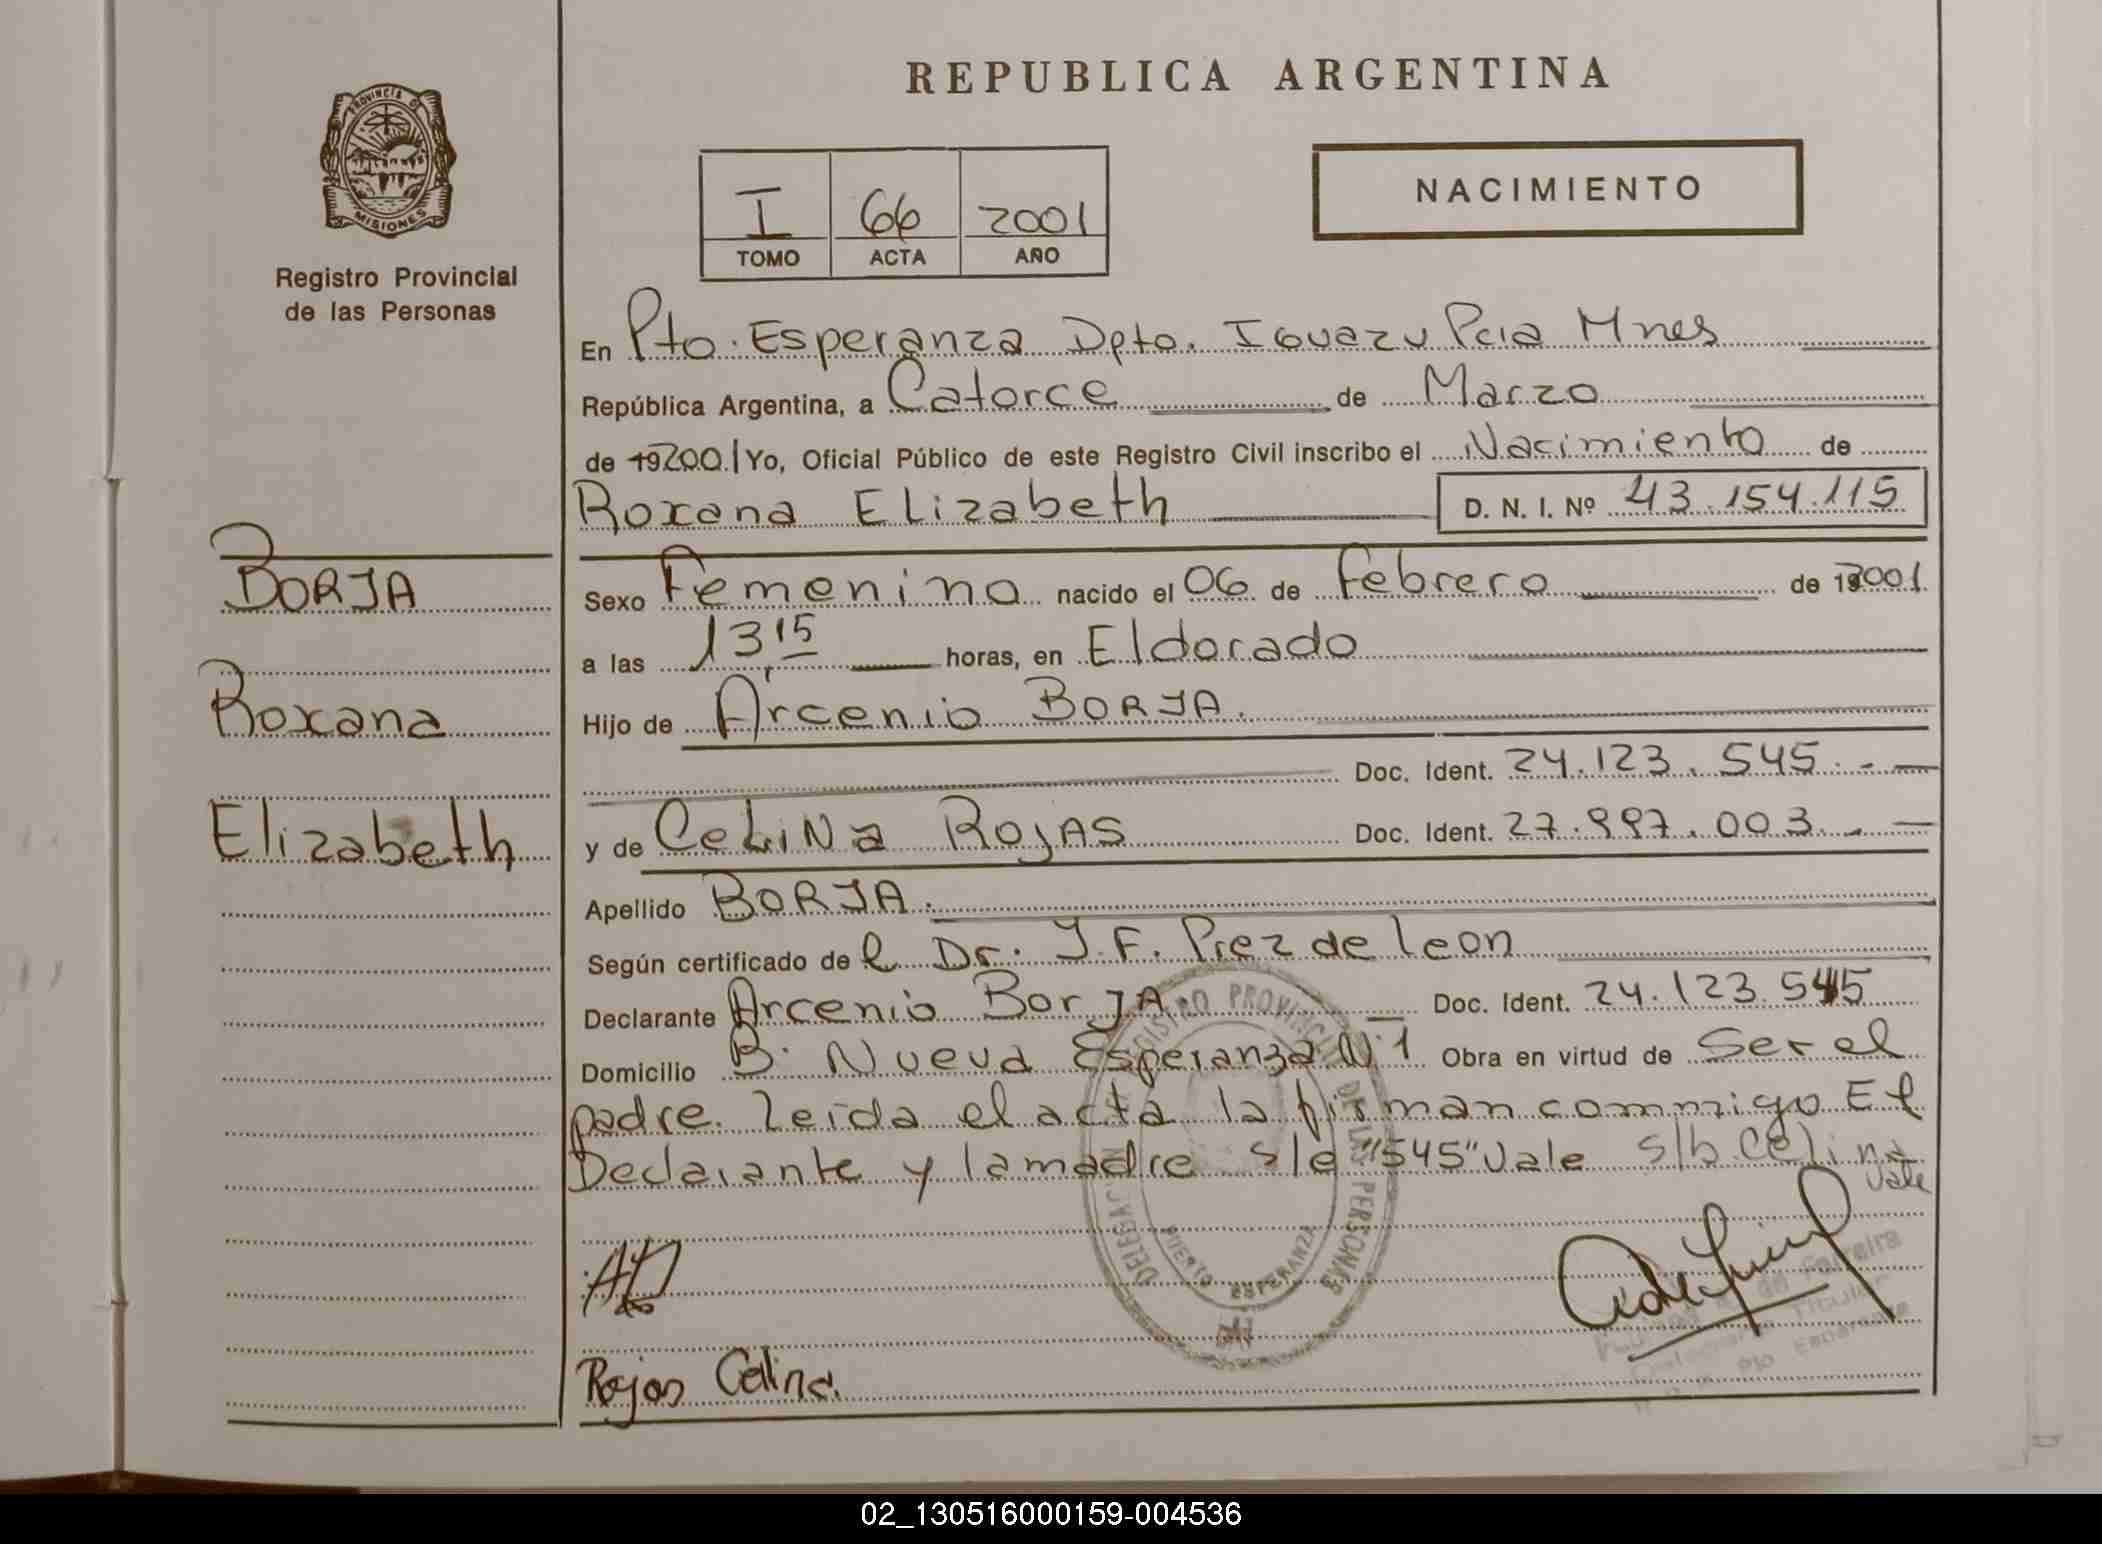 REPUBLICA ARGENTINA
PROVINCIA DE
MISIONES
Registro Provincial
de las Personas
NACIMIENTO
I 66 2001
TOMO ACTA AÑO
En Pto. Esperanza Dpto. Iguazu Pcia Mnes
República Argentina, a Catorce de Marzo
de 192001 Yo, Oficial Público de este Registro Civil inscribo el Nacimiento de
Roxana Elizabeth D. N. I. Nº 43.154.115
BORJA
Roxana
Elizabeth
Sexo Femenino nacido el 06 de Febrero de 2001.
a las 13,15 horas, en Eldorado
Hijo de Arcenio BORJA.
Doc. Ident. 24.123.545.-
y de CELINA ROJAS Doc. Ident. 27.997.003.-
Apellido BORJA.
Según certificado de l Dr. J.F. Prez de leon
Declarante Arcenio BorJA. Doc. Ident. 24.123.545
Domicilio B. Nueva Esperanza N.1 Obra en virtud de Ser el
padre. leida el acta la firman commigo El
Declarante y la madre s/e "545" Vale s/b Celina
Vale
REGISTRO PROVINCIAL DE LAS PERSONAS
DELEGAC.
PUERTO ESPERANZA
Rojas Celina.
02_130516000159-004536